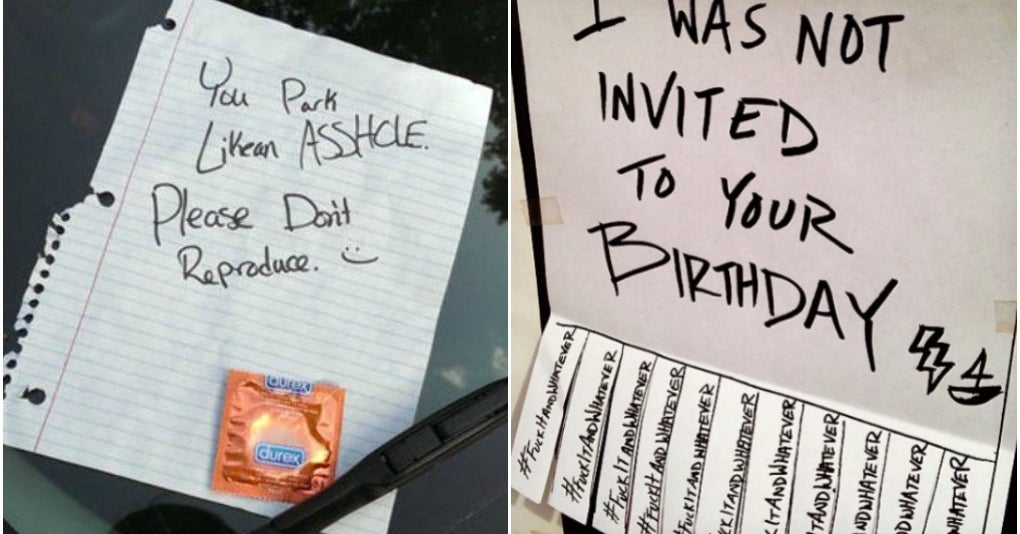 You Park
Likean ASSHOLE.
Please Don't
Reproduce. :)
durex
durex
I WAS NOT
INVITED
TO YOUR
BIRTHDAY
#FUCKITANDWHATEVER
#FUCKITANDWHATEVER
#FUCKITANDWHATEVER
#FUCKITANDWHATEVER
FUCKITANDWHATEVER
CKITANDWHATEVER
KITANDWHATEVER
TANDWHATEVER
NDWHATEVER
DWHATEVER
WHATEVER